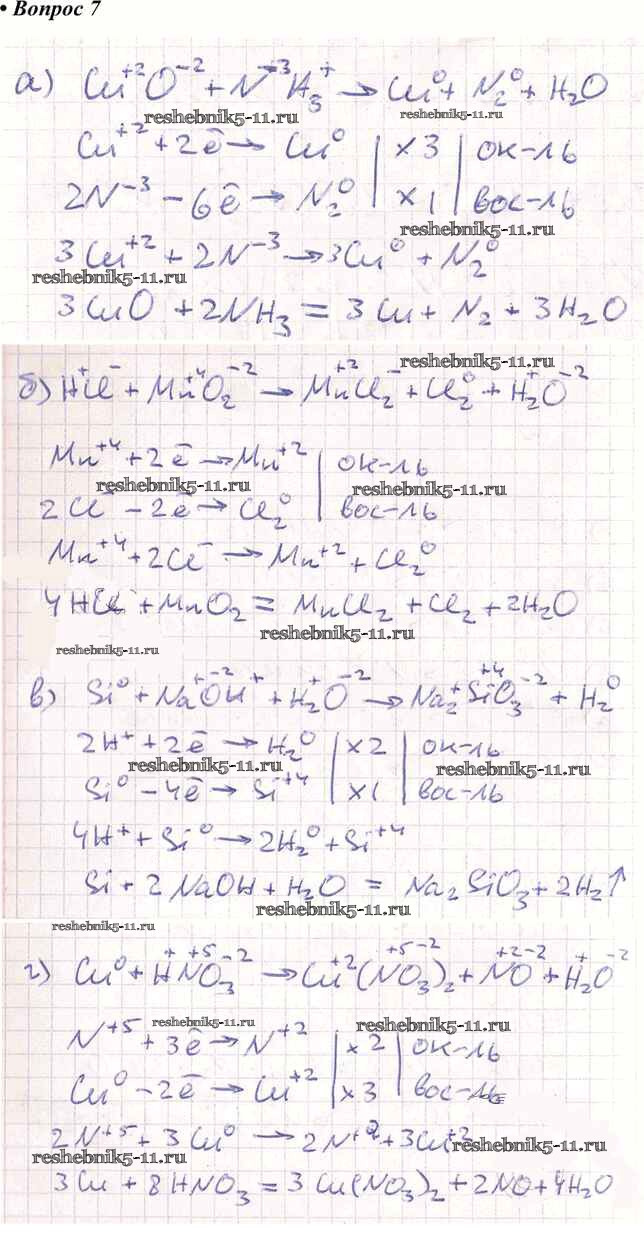 • Вопрос 7
а) Cu⁺²O⁻² + N⁻³H₃⁺ → Cu⁰ + N₂⁰ + H₂O
reshebnik5-11.ru reshebnik5-11.ru
Cu⁺² + 2ē → Cu⁰ | ×3 | ок-ль
2N⁻³ - 6ē → N₂⁰ | ×1 | вос-ль
reshebnik5-11.ru
3Cu⁺² + 2N⁻³ → 3Cu⁰ + N₂⁰
reshebnik5-11.ru
3CuO + 2NH₃ = 3Cu + N₂ + 3H₂O
reshebnik5-11.ru
б) H⁺Cl⁻ + Mn⁺⁴O₂⁻² → Mn⁺²Cl₂⁻ + Cl₂⁰ + H₂⁺O⁻²
Mn⁺⁴ + 2ē → Mn⁺² | ок-ль
reshebnik5-11.ru reshebnik5-11.ru
2Cl⁻ - 2ē → Cl₂⁰ | вос-ль
Mn⁺⁴ + 2Cl⁻ → Mn⁺² + Cl₂⁰
4HCl + MnO₂ = MnCl₂ + Cl₂ + 2H₂O
reshebnik5-11.ru
reshebnik5-11.ru
в) Si⁰ + Na⁺O⁻²H⁺ + H₂⁺O⁻² → Na₂⁺Si⁺⁴O₃⁻² + H₂⁰
2H⁺ + 2ē → H₂⁰ | ×2 | ок-ль
reshebnik5-11.ru reshebnik5-11.ru
Si⁰ - 4ē → Si⁺⁴ | ×1 | вос-ль
4H⁺ + Si⁰ → 2H₂⁰ + Si⁺⁴
Si + 2NaOH + H₂O = Na₂SiO₃ + 2H₂↑
reshebnik5-11.ru
reshebnik5-11.ru
г) Cu⁰ + H⁺N⁺⁵O₃⁻² → Cu⁺²(N⁺⁵O₃⁻²)₂ + N⁺²O⁻² + H₂⁺O⁻²
reshebnik5-11.ru reshebnik5-11.ru
N⁺⁵ + 3ē → N⁺² | ×2 | ок-ль
Cu⁰ - 2ē → Cu⁺² | ×3 | вос-ль
2N⁺⁵ + 3Cu⁰ → 2N⁺² + 3Cu⁺²
reshebnik5-11.ru reshebnik5-11.ru
3Cu + 8HNO₃ = 3Cu(NO₃)₂ + 2NO + 4H₂O